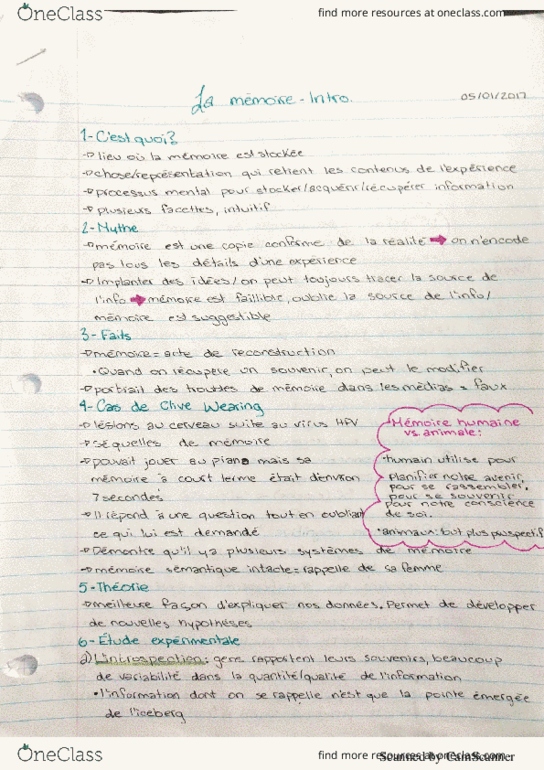 OneClass
find more resources at oneclass.com
La mémoire - Intro.
05/01/2017
1- C'est quoi?
lieu où la mémoire est stockée
chose/représentation qui retient les contenus de l'expérience
processus mental pour stocker/acquérir/récupérer information
plusieurs facettes, intuitif
2- Mythe
mémoire est une copie conforme de la réalité ➡ on n'encode
pas tous les détails d'une expérience
Implanter des idées/on peut toujours tracer la source de
l'info ➡ mémoire est faillible, oublie la source de l'info/
mémoire est suggestible
3- Faits
mémoire = acte de reconstruction
• Quand on récupère un souvenir, on peut le modifier
portrait des troubles de mémoire dans les médias = faux
4- Cas de Clive Wearing
lésions au cerveau suite au virus HPV
séquelles de mémoire
pouvait jouer au piano mais sa
mémoire à court terme était d'environ
7 secondes
Il répond à une question tout en oubliant
ce qui lui est demandé
Démontre qu'il y a plusieurs systèmes de mémoire
mémoire sémantique intacte = rappelle de sa femme
Mémoire humaine
vs. animale:
• humain utilise pour
planifier notre avenir,
pour se rassembler,
pour se souvenir,
pour notre conscience
de soi.
• animaux: but plus prospectif
5- Théorie
meilleure façon d'expliquer nos données. Permet de développer
de nouvelles hypothèses
6- Étude expérimentale
a) L'introspection: gens rapportent leurs souvenirs, beaucoup
de variabilité dans la quantité/qualité de l'information
• l'information dont on se rappelle n'est que la pointe émergée
de l'iceberg
OneClass
find more resources at oneclass.com
Scanned by CamScanner